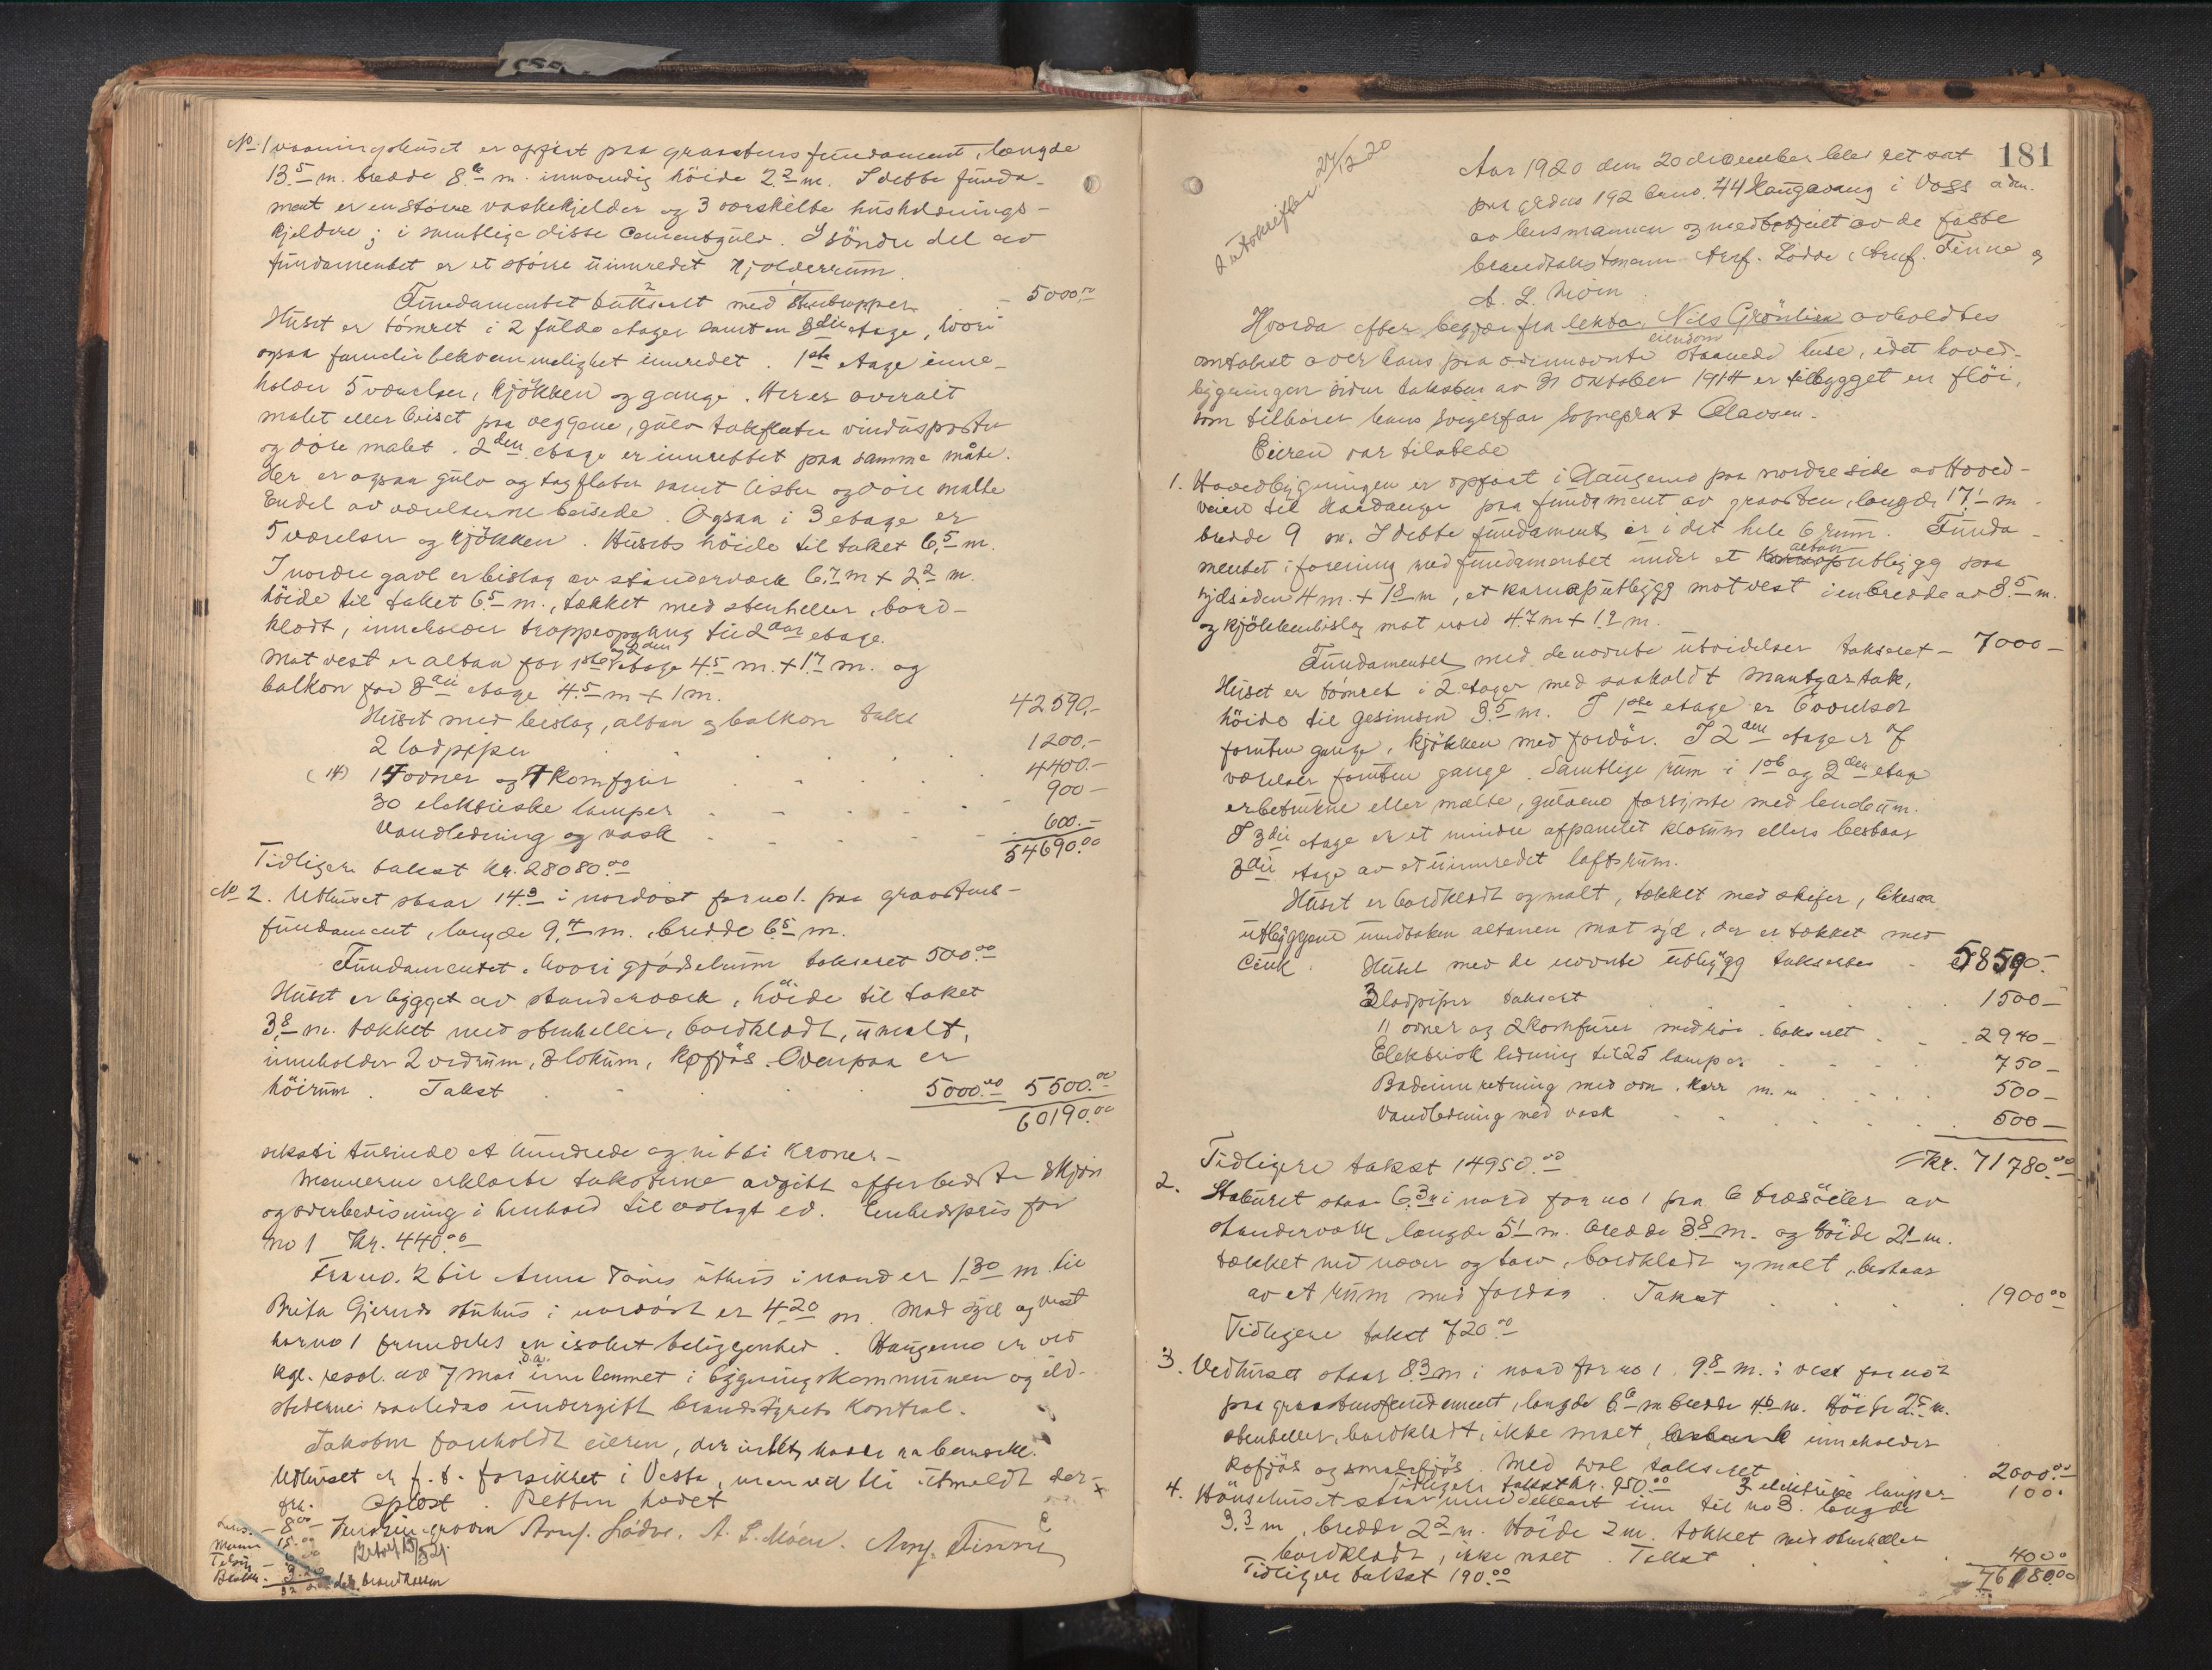 No. 1 vaaningshuset er opført paa graastensfundament, længde
13.5 m. bredde 8.6 m. innvendig höide 2.2 m. I dette funda-
ment er en större vaskekjelder og 3 særskilte husholdnings-
kjeldere; i samtlige disse cementgulv. I söndre del av
fundamentet er et större uinnredet kjelderrum.
Fundamentet taksert med 2 stentrapper - 5000.00
Huset er tömret i 2 fulde etager samt en 3die etage, hvori
ogsaa familiebekvemmelighet innredet. 1ste etage inne-
holder 5 værelser, kjökken og gange. Her er overalt
malet eller beiset paa veggene, gulv takflater vindusposter
og döre malet. 2den etage er innrettet paa samme måte.
Her er ogsaa gulv og tagflater samt lister og döre malte
Endel av værelserne beisede. Ogsaa i 3 etage er
5 værelser og kjökken. Husets höide til taket 6.5 m.
I nordre gavl er bislag av stenderverk 6.7 m + 2.2 m.
höide til taket 6.5 m., tækket med stenheller, bord-
klædt, inneholder trappeopgang til 2den etage.
Mot vest er altan for 1ste og 2den etage 4.5 m. + 1.7 m. og
balkon for 3die etage 4.5 m + 1 m.
Huset med bislag, altan og balkon takst 42590.-
2 ladpiper 1200.-
(14) 14 ovner og 4 komfyr 4400.-
30 elektriske lamper 900-
Vandledning og vask 600.-
54690.00
Tidligere takst kr. 28080.00
No 2. Uthuset staar 14.3 i nordöst for no 1. paa graastens-
fundament, længde 9.4 m., bredde 6.5 m.
Fundamentet, hvori gjödselrum taksert 500.00
Huset er bygget av stenderverk, höide til taket
3.8 m. tækket med stenheller, bordklædt, umalt,
inneholder 2 vedrum, 3 lokum, kofjös. Ovenpaa er
höirum. Takst 5000.00 5500.00
60190.00
seksti tusinde et hundrede og nitti kroner-
Mennerne erklærte taksterne avgitt efter bedste skjön
og overbevisning i henhold til avlagt ed. Enhedspris for
no 1 Kr. 440.00
Fra no. 2 til Anna Tönes uthus i nord er 1.30 m. til
Brita Gjernds stuhus i nordöst er 4.20 m. Mod syd og vest
har no 1 fremdeles en isolert beliggenhed. Haugamo er ved
kgl. resol. av 7 mai d.a. innlemmet i bygningskommunen og ild-
stederne saaledes undergitt brandstyrets kontrol.
Taksten forholdt eieren, der intet havde at bemerke.
Uthuset er f.t. forsikret i Vesta, men vil bli utmeldt der-
fra. Oplest. Retten hævet
Arnf. Lödve. A. L. Möen. Arnf. Finne
Lens. - 8.00
Menn 15.00
Telsyn - 6.00
Betalt 15/5 21.
3.20
32.20 bet. brandkassen
181
2 utskrifter 27/12 20
Aar 1920 den 20 december blev ret sat
paa gårds 192 bruno. 44 Haugavang i Voss adm.
av lensmannen og medbetjent av de faste
brandtakstmenn Arnf. Lödve, Arnf. Finne og
A. L. Möen.
Hvorda efter begjær fra lektor Nils Grönlien avholdtes
omtakst over hans paa ovennævnte eiendom staaende huse, idet hoved-
bygningen siden taksten av 31 oktober 1914 er tilbygget en flöi,
som tilhörer hans svigerfar sogneprest Olavsen.
Eieren var tilstede
1. Hovedbygningen er opfört i Haugamo paa nordre side av Hoved-
veien til Hardanger paa fundament av graasten, længde 17.1 m
bredde 9 m. I dette fundament er i det hele 6 rum. Funda-
mentet i forening med fundamentet under et altan utbygg paa
sydsiden 4 m. + 1.8 m, et karnaputbygg mot vest i en bredde av 3.5 m.
og kjökkenbislag mot nord 4.7 m + 1.9 m.
Fundamentet med de nævnte utvidelser taksert - 7000-
Huset er tömret i 2 etager med saakaldt mansartak,
höide til gesimsen 3.5 m. I 1ste etage er 6 værelser
foruten gange, kjökken med fordör. I 2den etage er 7
værelser foruten gange. Samtlige rum i 1ste og 2den etage
er betrukne eller malte, gulvene forsynte med linoleum.
I 3die etage er et mindre afpanelet klærum ellers bestaar
3die etage av et uinnredet loftsrum.
Huset er bordklædt og malt, tækket med skifer, likesaa
utbyggene undtaken altanen mot syd, der er tækket med
Cink. Huset med de nævnte utbygg taksertes 58590.-
3 ladpiper taksert 1500-
11 ovner og 2 komfurer med rör. taksert 2940-
Elektrisk ledning til 25 lamper 750-
Badeinnretning med ovn, kar m.m 500-
Vandledning med vask 500-
Tidligere takst 14950.00 Kr. 71780.00
2. Staburet staar 6.3 m i nord for no 1 paa 6 træsöiler av
stenderverk længde 5.1 m. bredde 3.8 m. og höide 2.1 m.
tækket med næver og torv, bordklædt og malt, bestaar
av et rum med fordör. Takst 1900.00
Tidligere takst 720.00
3. Vedhuset staar 8.3 m i nord for no 1. 9.8 m. i vest for no 2
paa graastensfundament, længde 6.6 m bredde 4.6 m. Höide 2.5 m.
stenheller, bordklædt, ikke malt, inneholder
kofjös og smalefjös. Med hvæl taksert 2000.00
Tidligere takst kr. 950.00 3 elektriske lamper 100.
4. Hönsehuset staar umiddelbart inn til no 3. længde
3.3 m, bredde 2.2 m. Höide 2 m. tækket med stenheller
bordklædt, ikke malt. Takst 400.00
Tidligere takst 190.00 76180.00